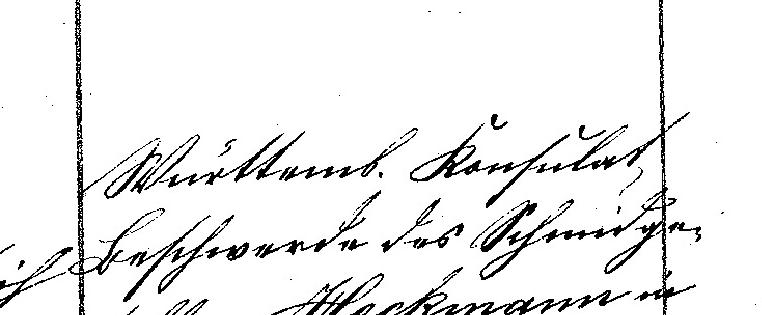 Württemb. Konsulat,
Beschwerde des Schmidge-
Heckmann in